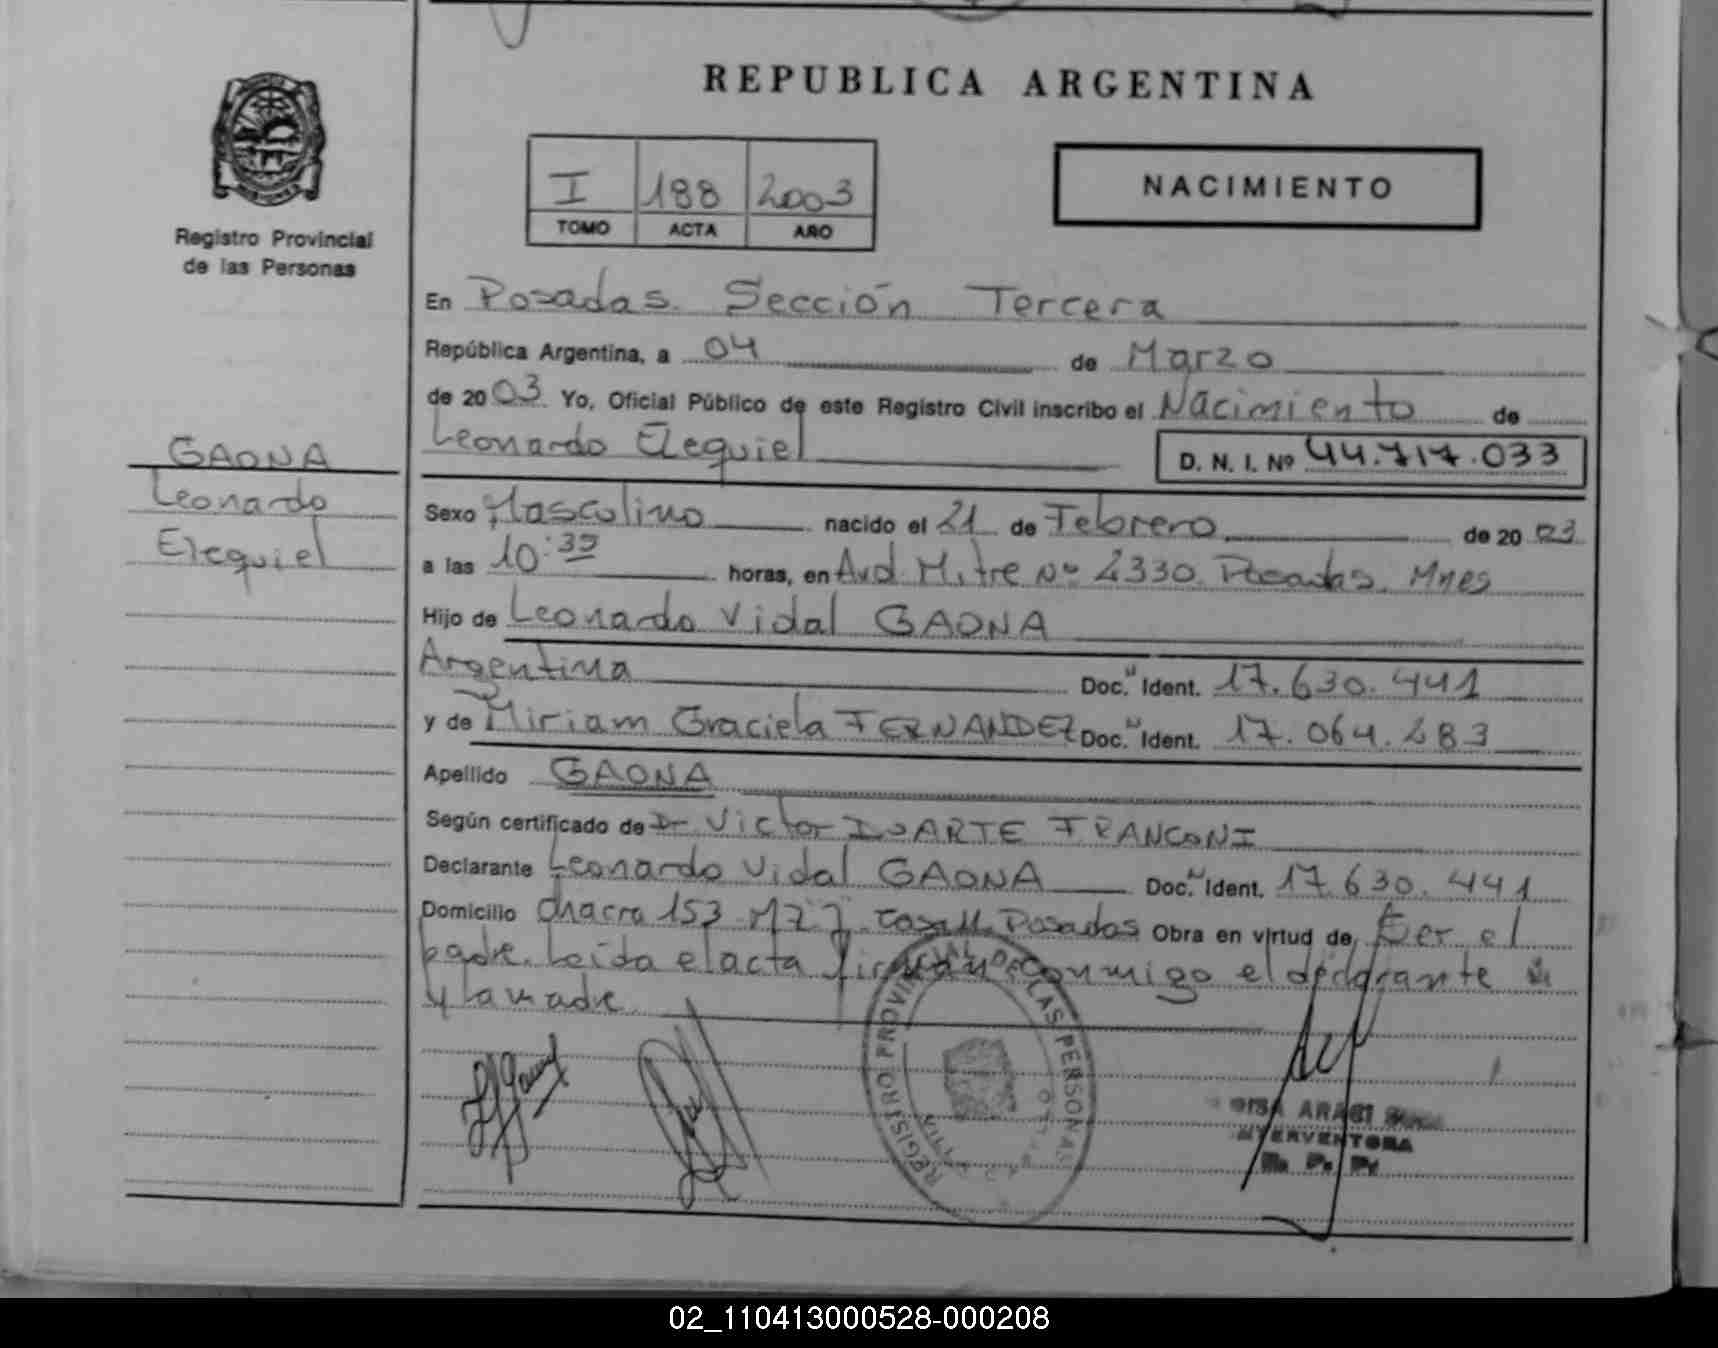 REPUBLICA ARGENTINA
I 188 2003
TOMO ACTA AÑO
NACIMIENTO
Registro Provincial
de las Personas
En Posadas. Sección Tercera
República Argentina, a 04 de Marzo
de 2003 Yo, Oficial Público de este Registro Civil inscribo el Nacimiento de
Leonardo Ezequiel D. N. I. Nº 44.717.033
GAONA
Leonardo
Ezequiel
Sexo Masculino nacido el 21 de Febrero de 2003
a las 10:35 horas, en Avd. Mitre Nº 2330. Posadas. Mnes
Hijo de Leonardo Vidal GAONA
Argentina Doc. Ident. 17.630.441
y de Miriam Graciela FERNANDEZ Doc. Ident. 17.064.283
Apellido GAONA
Según certificado de Dr. Victor DUARTE FRANCONI
Declarante Leonardo Vidal GAONA Doc. Ident. 17.630.441
Domicilio chacra 153 Mz J. Posadas Obra en virtud de Ser el
padre. Leída el acta firman conmigo el declarante
y la madre
REGISTRO PROVINCIAL DE LAS PERSONAS
ARACI
INTERVENTORA
02_110413000528-000208